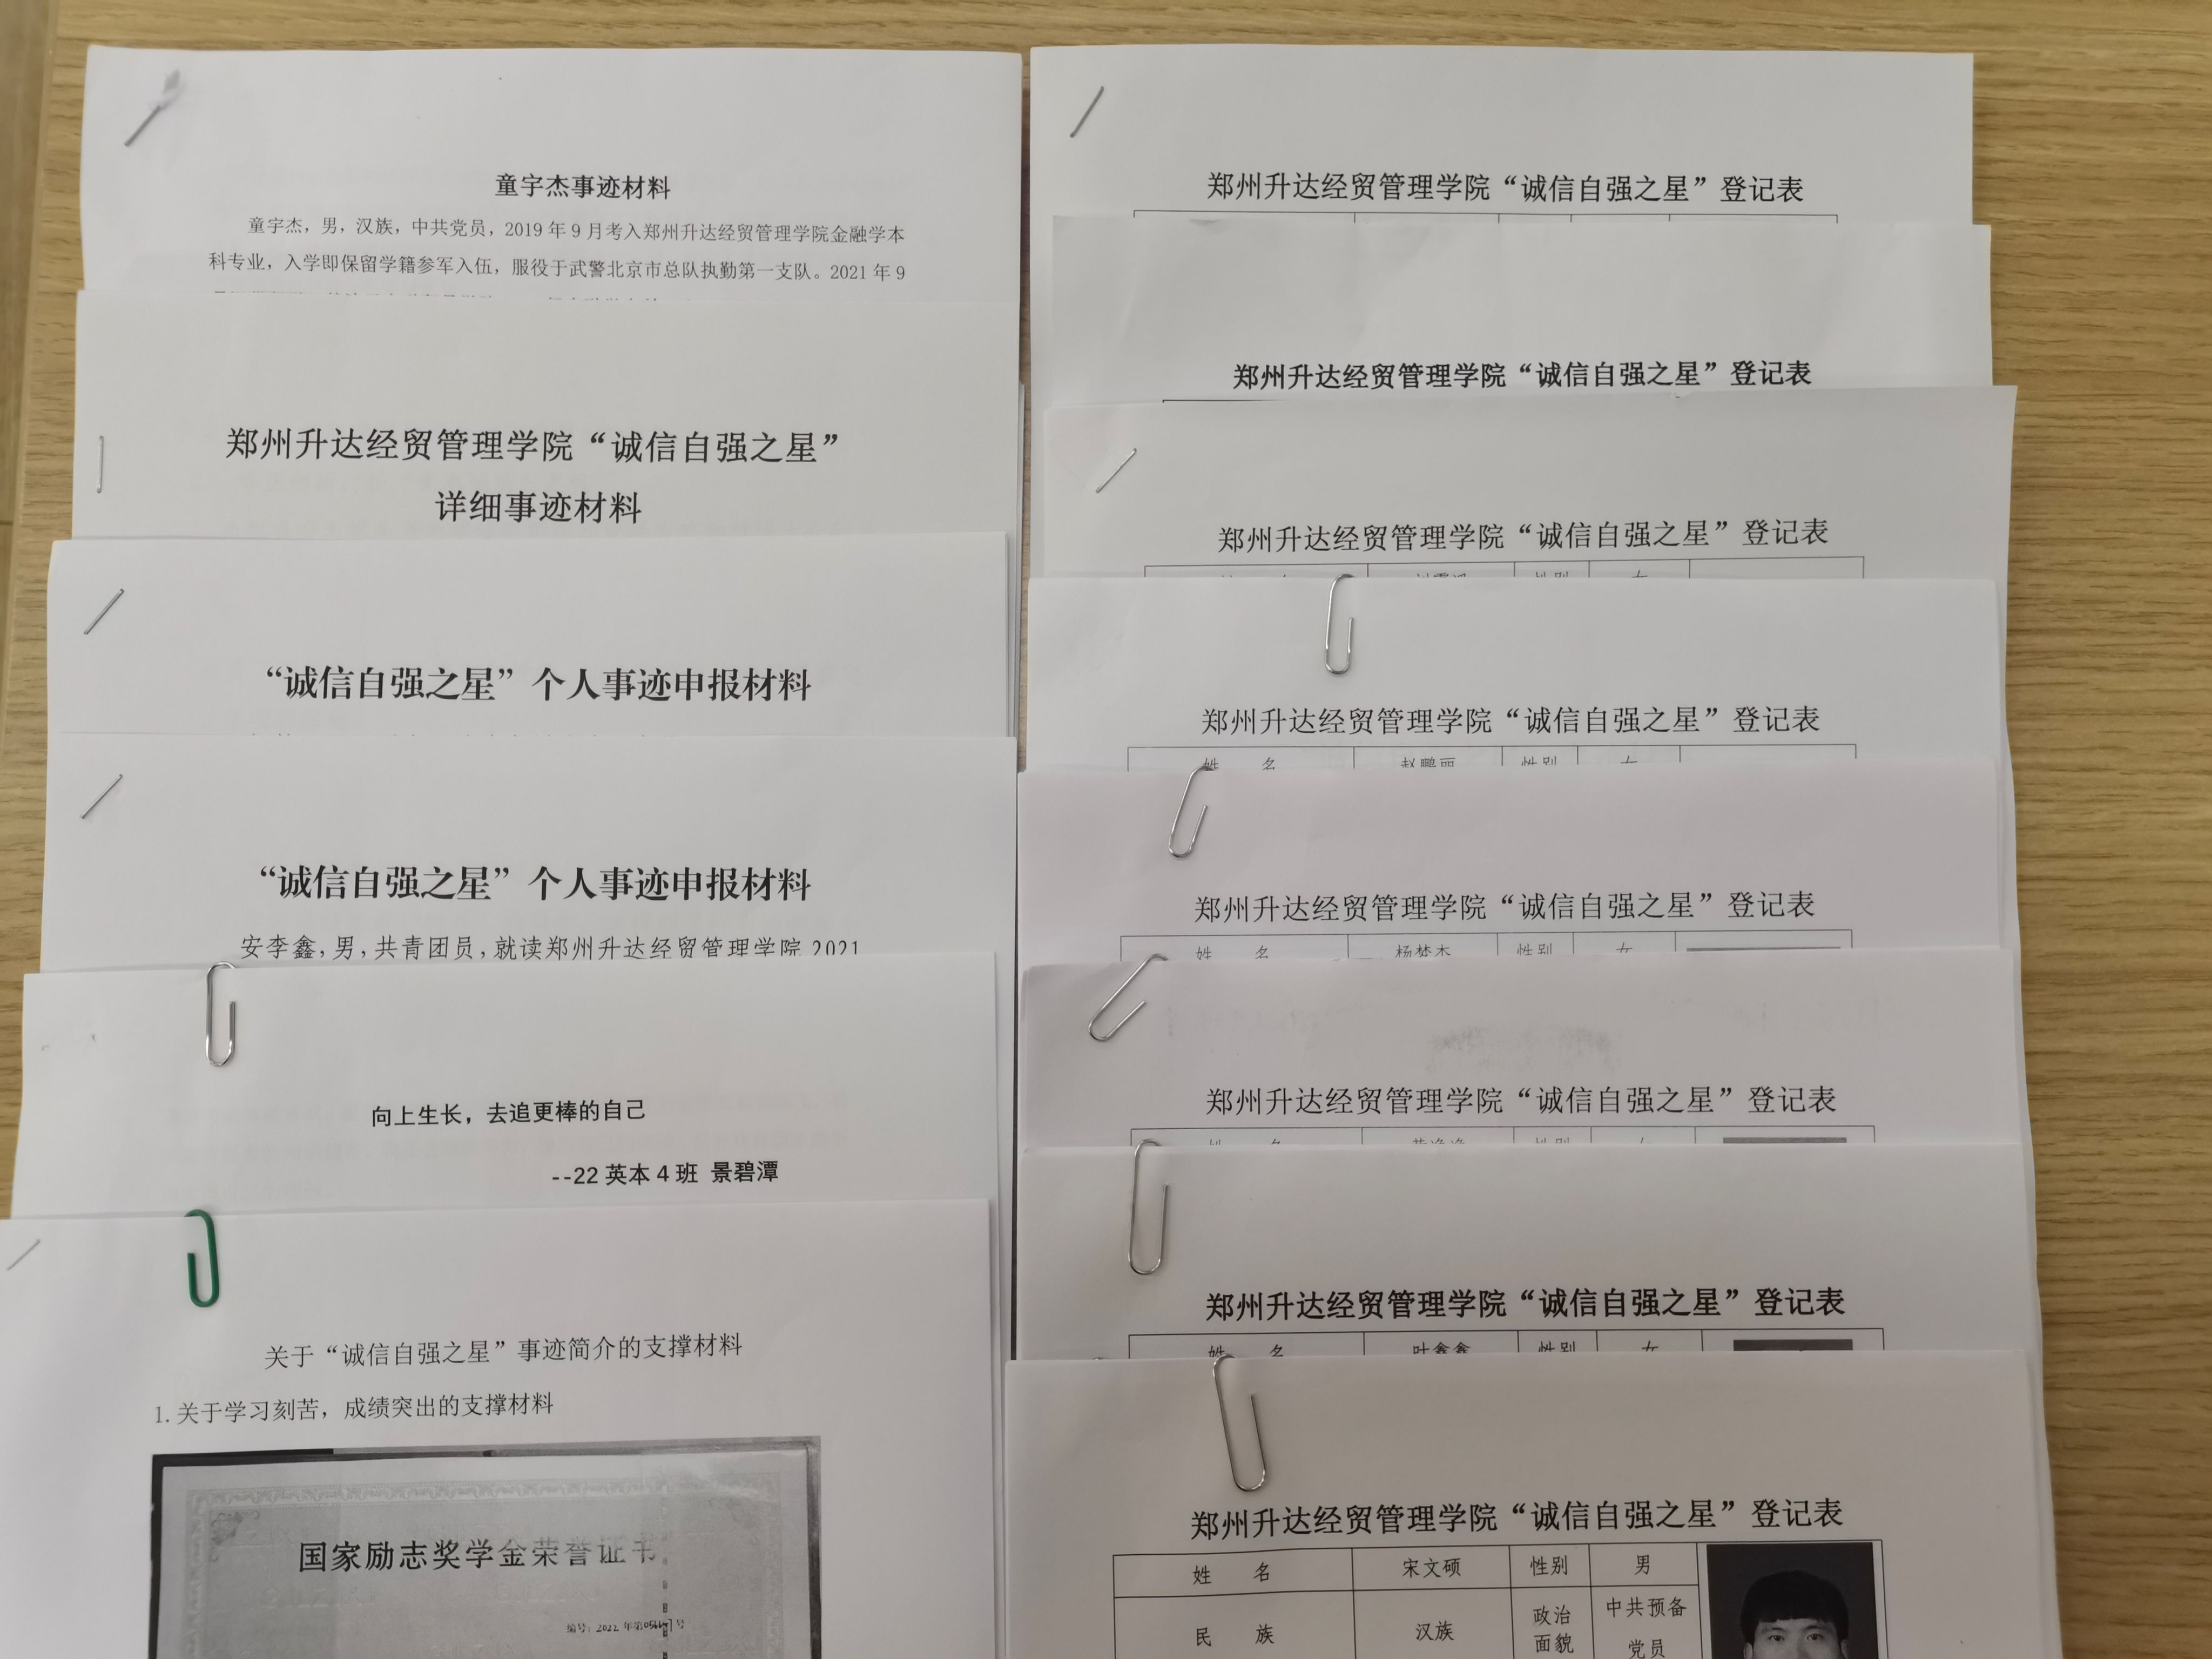 童宇杰事迹材料
童宇杰，男，汉族，中共党员，2019 年 9 月考入郑州升达经贸管理学院金融学本
科专业，入学即保留学籍参军入伍，服役于武警北京市总队执勤第一支队。2021 年 9
郑州升达经贸管理学院“诚信自强之星”
详细事迹材料
“诚信自强之星”个人事迹申报材料
“诚信自强之星”个人事迹申报材料
安李鑫，男，共青团员，就读郑州升达经贸管理学院 2021
向上生长，去追更棒的自己
--22 英本 4 班 景碧潭
关于“诚信自强之星”事迹简介的支撑材料
1.关于学习刻苦，成绩突出的支撑材料
国家励志奖学金荣誉证书
编号：2022 年第
号
郑州升达经贸管理学院“诚信自强之星”登记表
郑州升达经贸管理学院“诚信自强之星”登记表
郑州升达经贸管理学院“诚信自强之星”登记表
性别 女
郑州升达经贸管理学院“诚信自强之星”登记表
姓 名 赵鹏丽 性别 女
郑州升达经贸管理学院“诚信自强之星”登记表
姓 名 杨梦杰 性别 女
郑州升达经贸管理学院“诚信自强之星”登记表
姓 名 性别 女
郑州升达经贸管理学院“诚信自强之星”登记表
姓 名 叶鑫鑫 性别 女
郑州升达经贸管理学院“诚信自强之星”登记表
姓 名 宋文硕 性别 男
民 族 汉族 政治面貌 中共预备党员